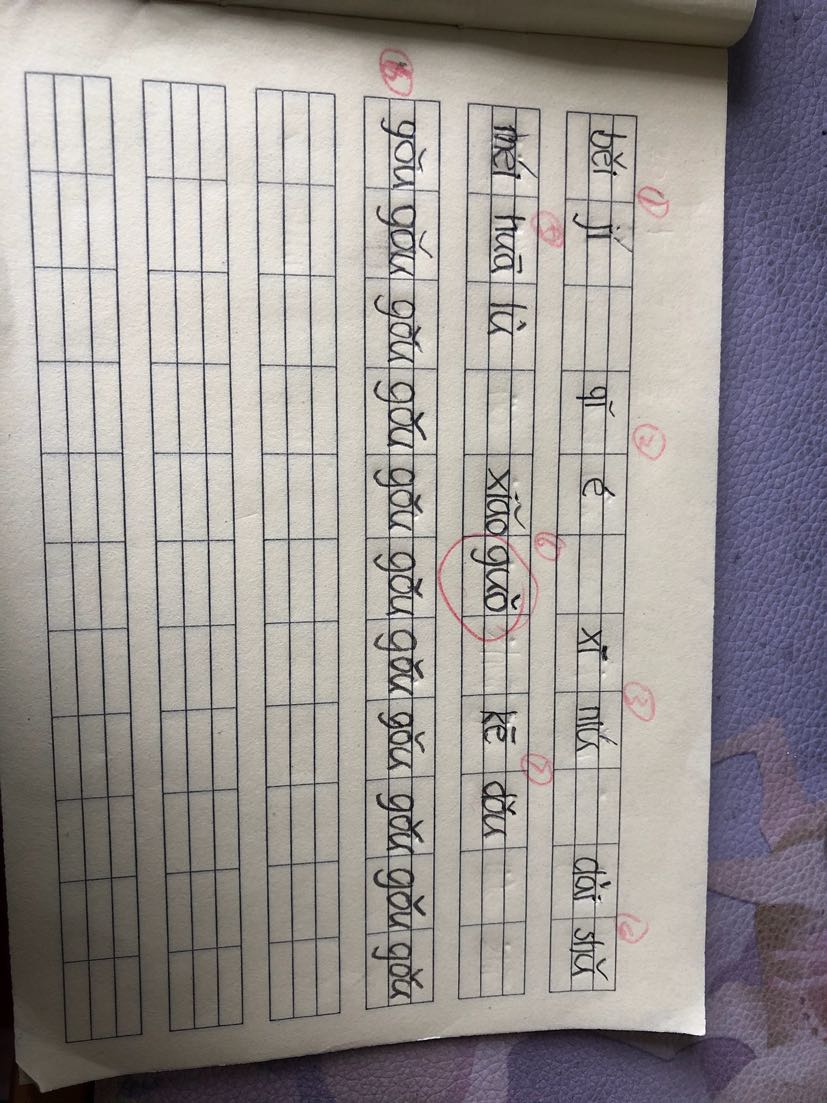 ① ② ③ ④
běi jí qǐ é xī niú dài shǔ
⑤ ⑥ ⑦
méi huā lù xiǎo guǒ kē dǒu
gǒu gǒu gǒu gǒu gǒu gǒu gǒu gǒu gǒu gǒu gǒu